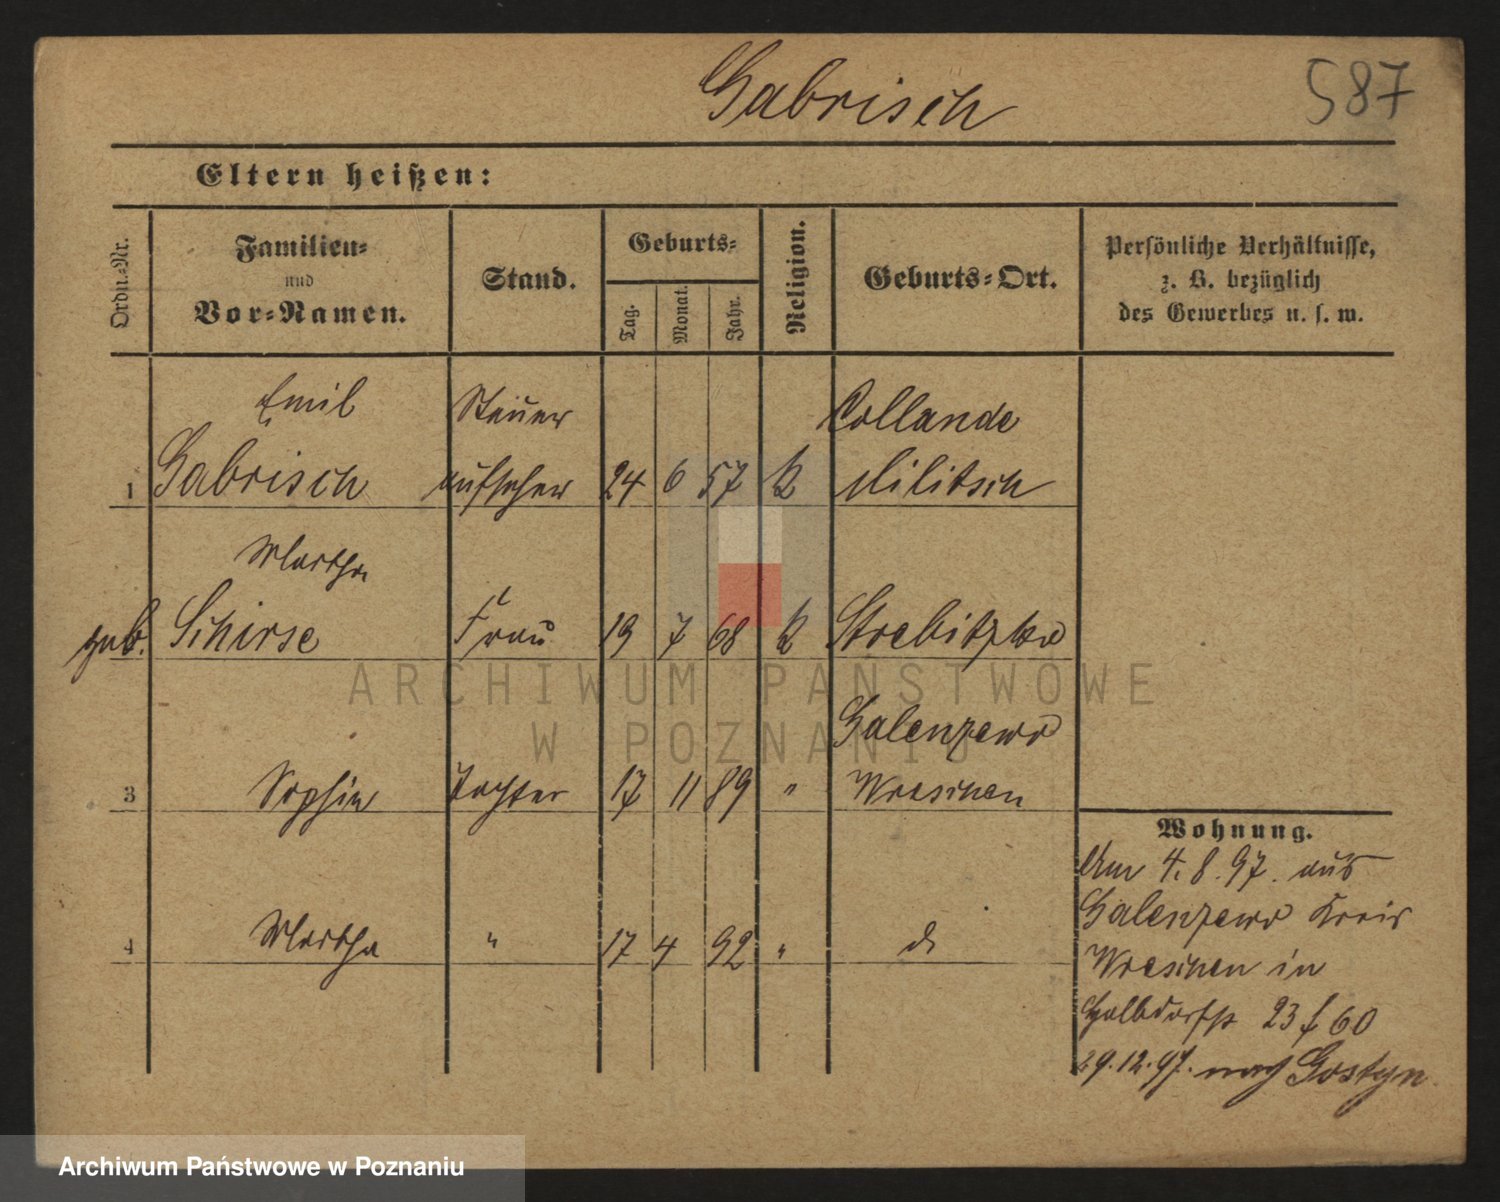 Gabrisch
587
Eltern heißen:
Ordn.-Nr.
Familien-
und
Vor-Namen.
Stand.
Geburts-
Tag.
Monat.
Jahr.
Religion.
Geburts-Ort.
Persönliche Verhältnisse,
z. B. bezüglich
des Gewerbes u. s. w.
Emil Steuer Collande
1 Gabrisch aufseher 24 6 57 K Militsch
Martha
geb. Schirse Frau 19 7 68 K Strebitzko
Galenzewo
3 Sophie Tochter 17 11 89 " Wreschen
4 Martha " 17 4 92 " do
Wohnung.
Am 4.8.97. aus
Galenzewo Kreis
Wreschen in
Halbdorfstr 23 f 60
29.12.97. nach Gostyn.
ARCHIWUM PAŃSTWOWE
W POZNANIU
Archiwum Państwowe w Poznaniu